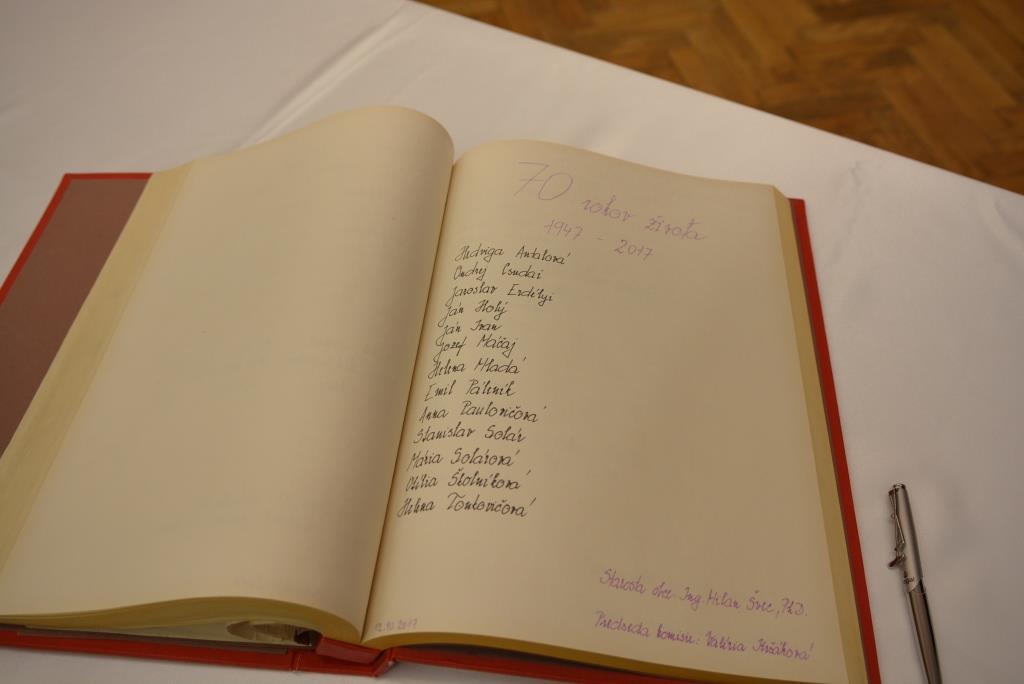 70 rokov života
1947 - 2017
Hedviga Antalová
Ondrej Csudai
Jaroslav Erdélyi
Ján Holý
Ján Ivan
Jozef Máčaj
Helena Mladá
Emil Páleník
Anna Paulovičová
Stanislav Solár
Mária Solárová
Otília Školníková
Helena Tonkovičová
Starosta obce: Ing. Milan Švec, PhD.
Predseda komisie: Valéria Križáková
12.10.2017